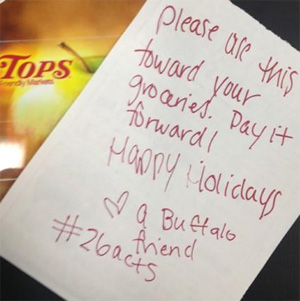 Tops
Friendly Markets
Please use this
toward your
groceries. Pay it
forward!
Happy Holidays
♡ a Buffalo
friend
#26acts